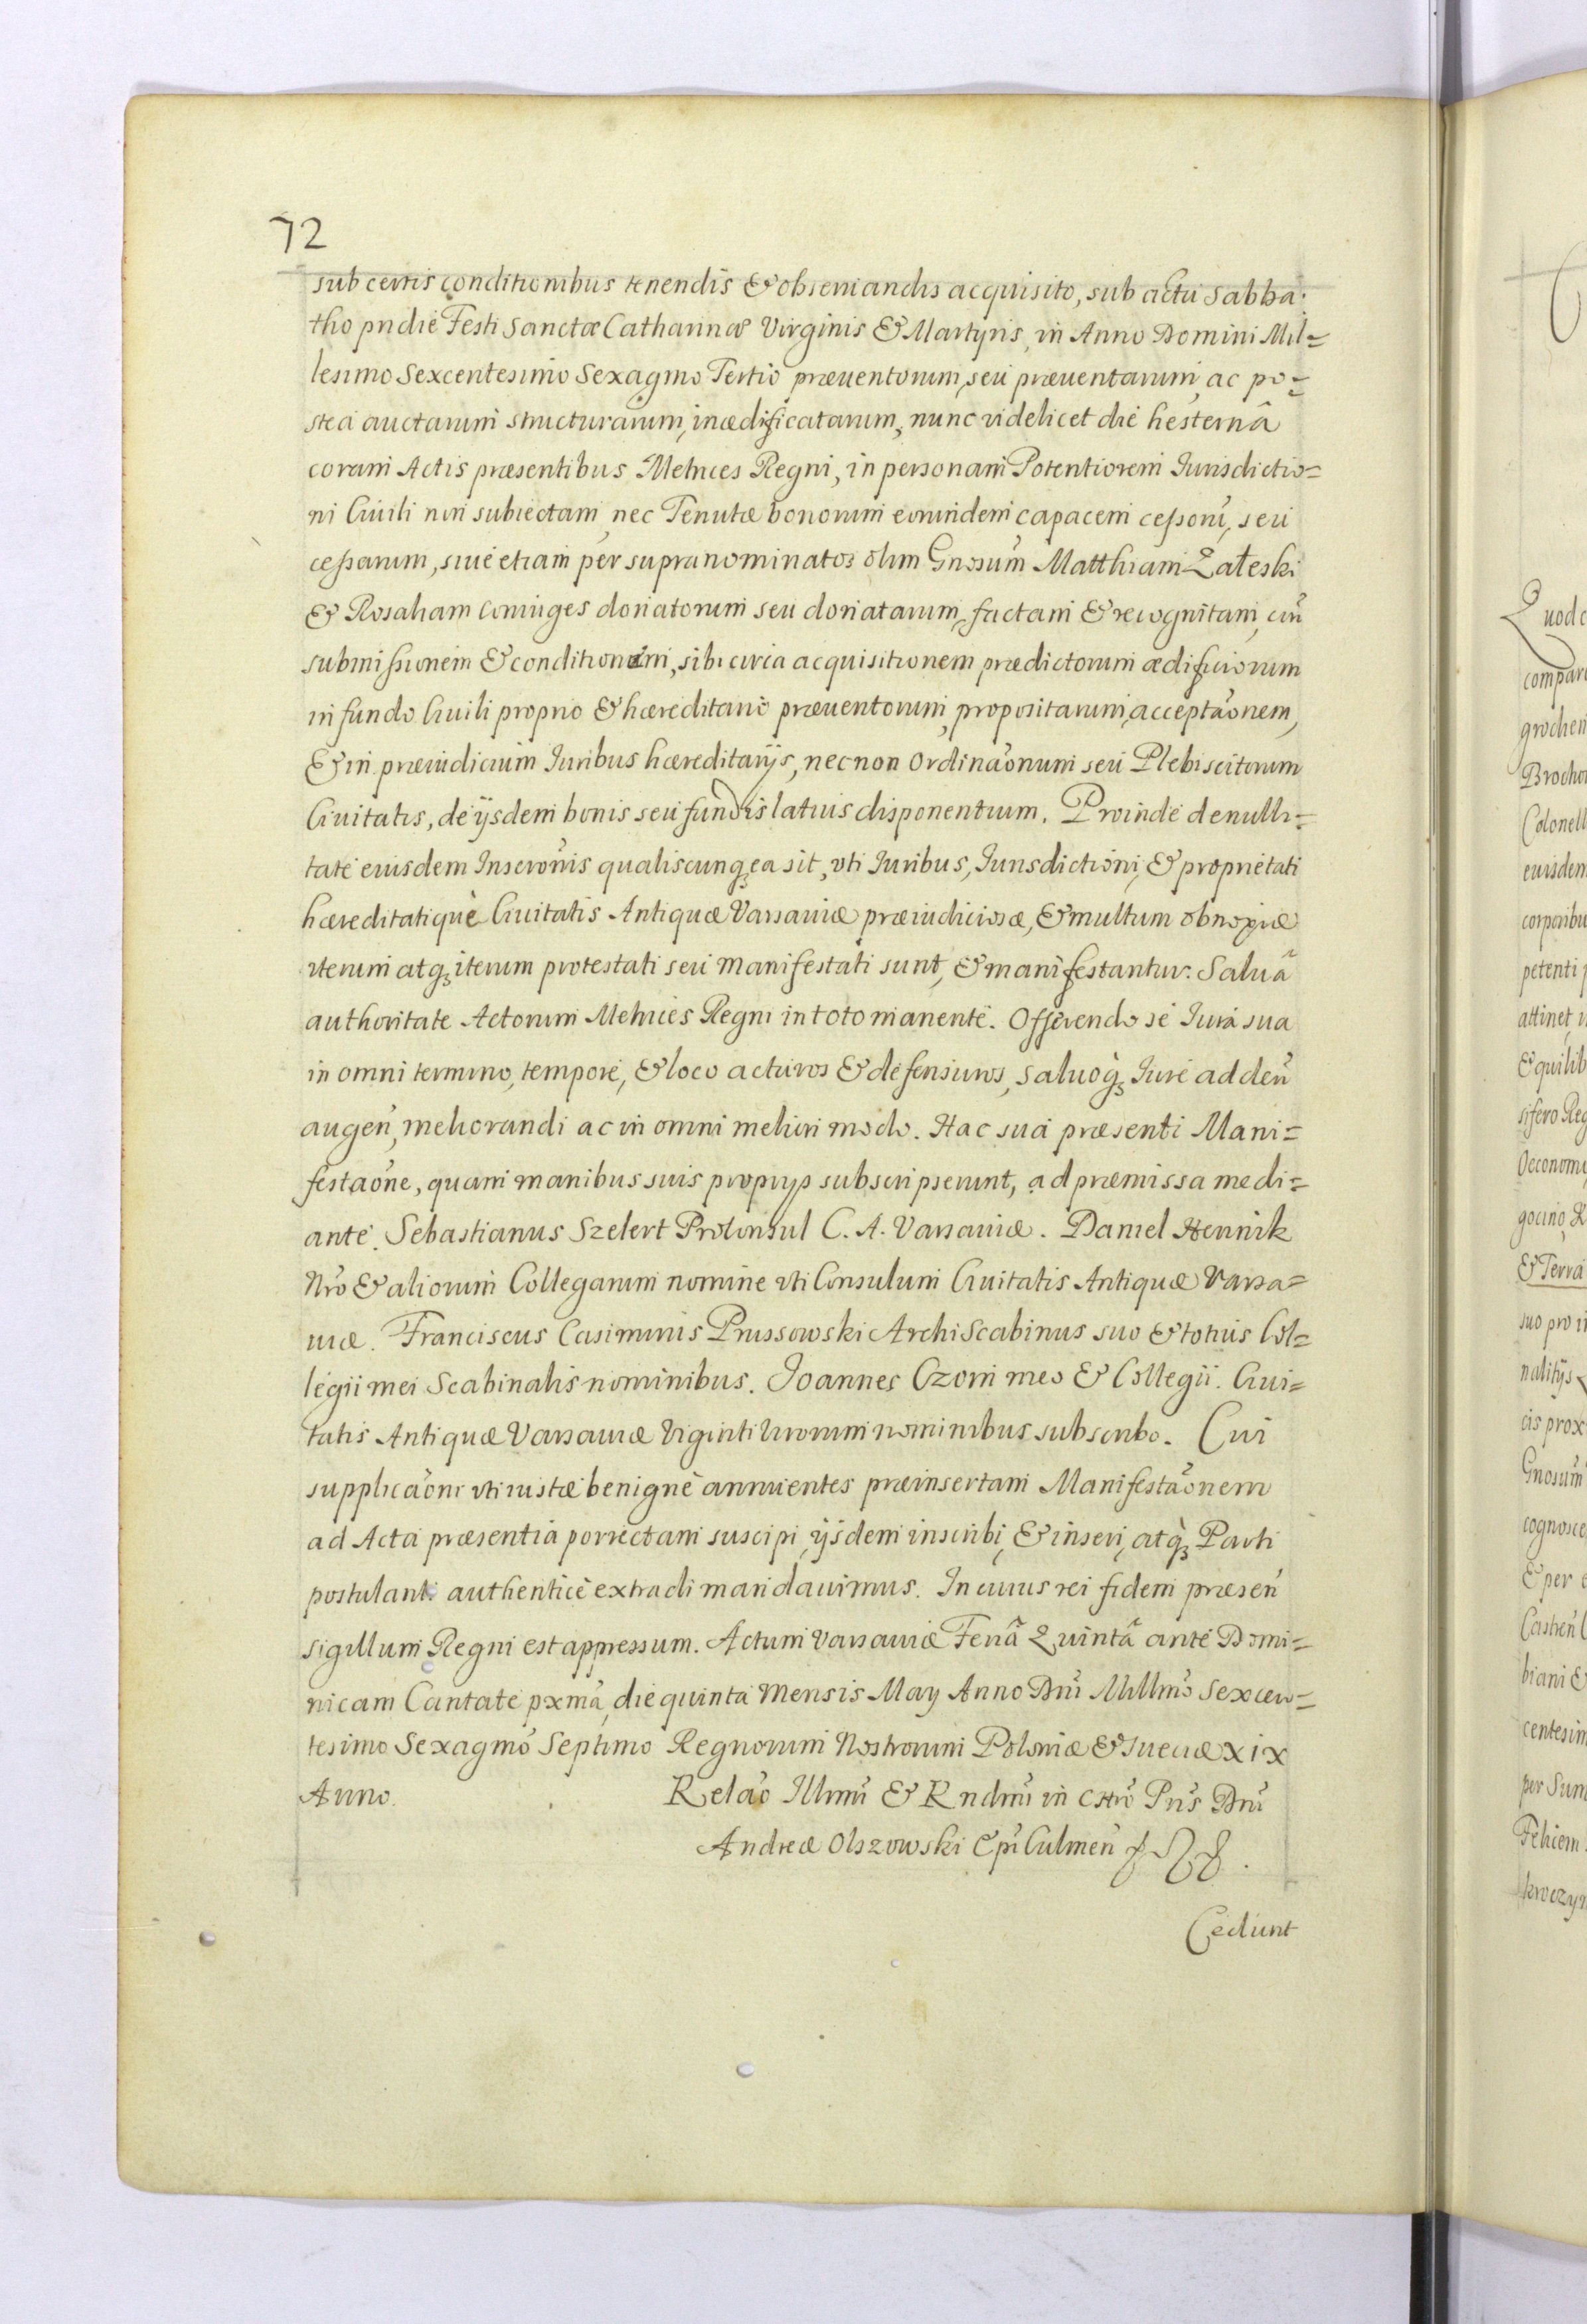 72
sub certis conditionibus tenendis & obseruandis acquisito, sub actu Sabba:
tho pridie Festi Sanctæ Catharinæ Virginis & Martyris, in Anno Domini Mil=
lesimo Sexcentesimo Sexagmo Tertio præuentorum, seu præuentarum, ac po=
stea auctarum structurarum, inædificatarum, nunc videlicet die hesternâ
coram Actis præsentibus Metrices Regni, in personam Potentiorem Jurisdictio=
ni Ciuili non subiectam nec Tenutæ bonorum eorundem capacem cessorū, seu
cessarum, siue etiam per supranominatos olim Gnosum Matthiam Załeski
& Rosaliam Coniuges donatorum seu donatarum, factam & recognitam, cū
submissionem & conditionem, sibi circa acquisitionem prædictorum ædificiorum
in fundo Ciuili proprio & hæreditario præuentorum, propositarum, acceptaõnem,
& in præiudicium Juribus hæreditarijs, nec non Ordinaõnum seu Plebiscitorum
Ciuitatis, de ijsdem bonis seu fundis latius disponentium. Proinde de nulli=
tate eiusdem Inscrõnis qualiscunq; ea sit, vti Juribus, Jurisdictioni, & proprietati
hæreditatique Ciuitatis Antiquæ Varsauiæ præiudiciosæ, & multum obnoxiæ
iterum atq; iterum protestati seu manifestati sunt, & manifestantur. Saluâ
authoritate Actorum Metrices Regni in toto manente. Offerendo se Jura sua
in omni termino, tempore, & loco acturos & defensuros, saluoq; Jure adden̄
augen̄, meliorandi ac in omni meliori modo. Hac sua præsenti Mani=
festaõne, quam manibus suis proprijs subscripserunt, ad præmissa medi=
ante. Sebastianus Szelert Proconsul C. A. Varsauiæ. Daniel Hennik
Nrõ & aliorum Collegarum nomine vti Consulum Ciuitatis Antiquæ Varsa=
uiæ. Franciscus Casimirus Prussowski ArchiScabinus suo & totius Col=
legii mei Scabinalis nominibus. Joannes Czom meo & Collegii. Ciui=
tatis Antiquæ Varsauiæ Vigintivirorum nominibus subscribo. Cui
supplicaõni vti iustæ benigne annuentes præinsertam Manifestaõnem
ad Acta præsentia porrectam suscipi, ijsdem inscribi, & inseri, atq; Parti
postulanti authentice extradi mandauimus. In cuius rei fidem præsen̄
sigillum Regni est appressum. Actum Varsauiæ Feriâ Quintâ ante Domi=
nicam Cantate pxmã, die quinta Mensis May Anno Dnī Millmõ Sexcen=
tesimo Sexagmõ Septimo Regnorum Nostrorum Poloniæ & Sueciæ XIX
Anno. Relaõ Illmī & Rndmī in Chrō Prīs Dnī
Andreæ Olszowski Epī Culmen̄
Cedunt